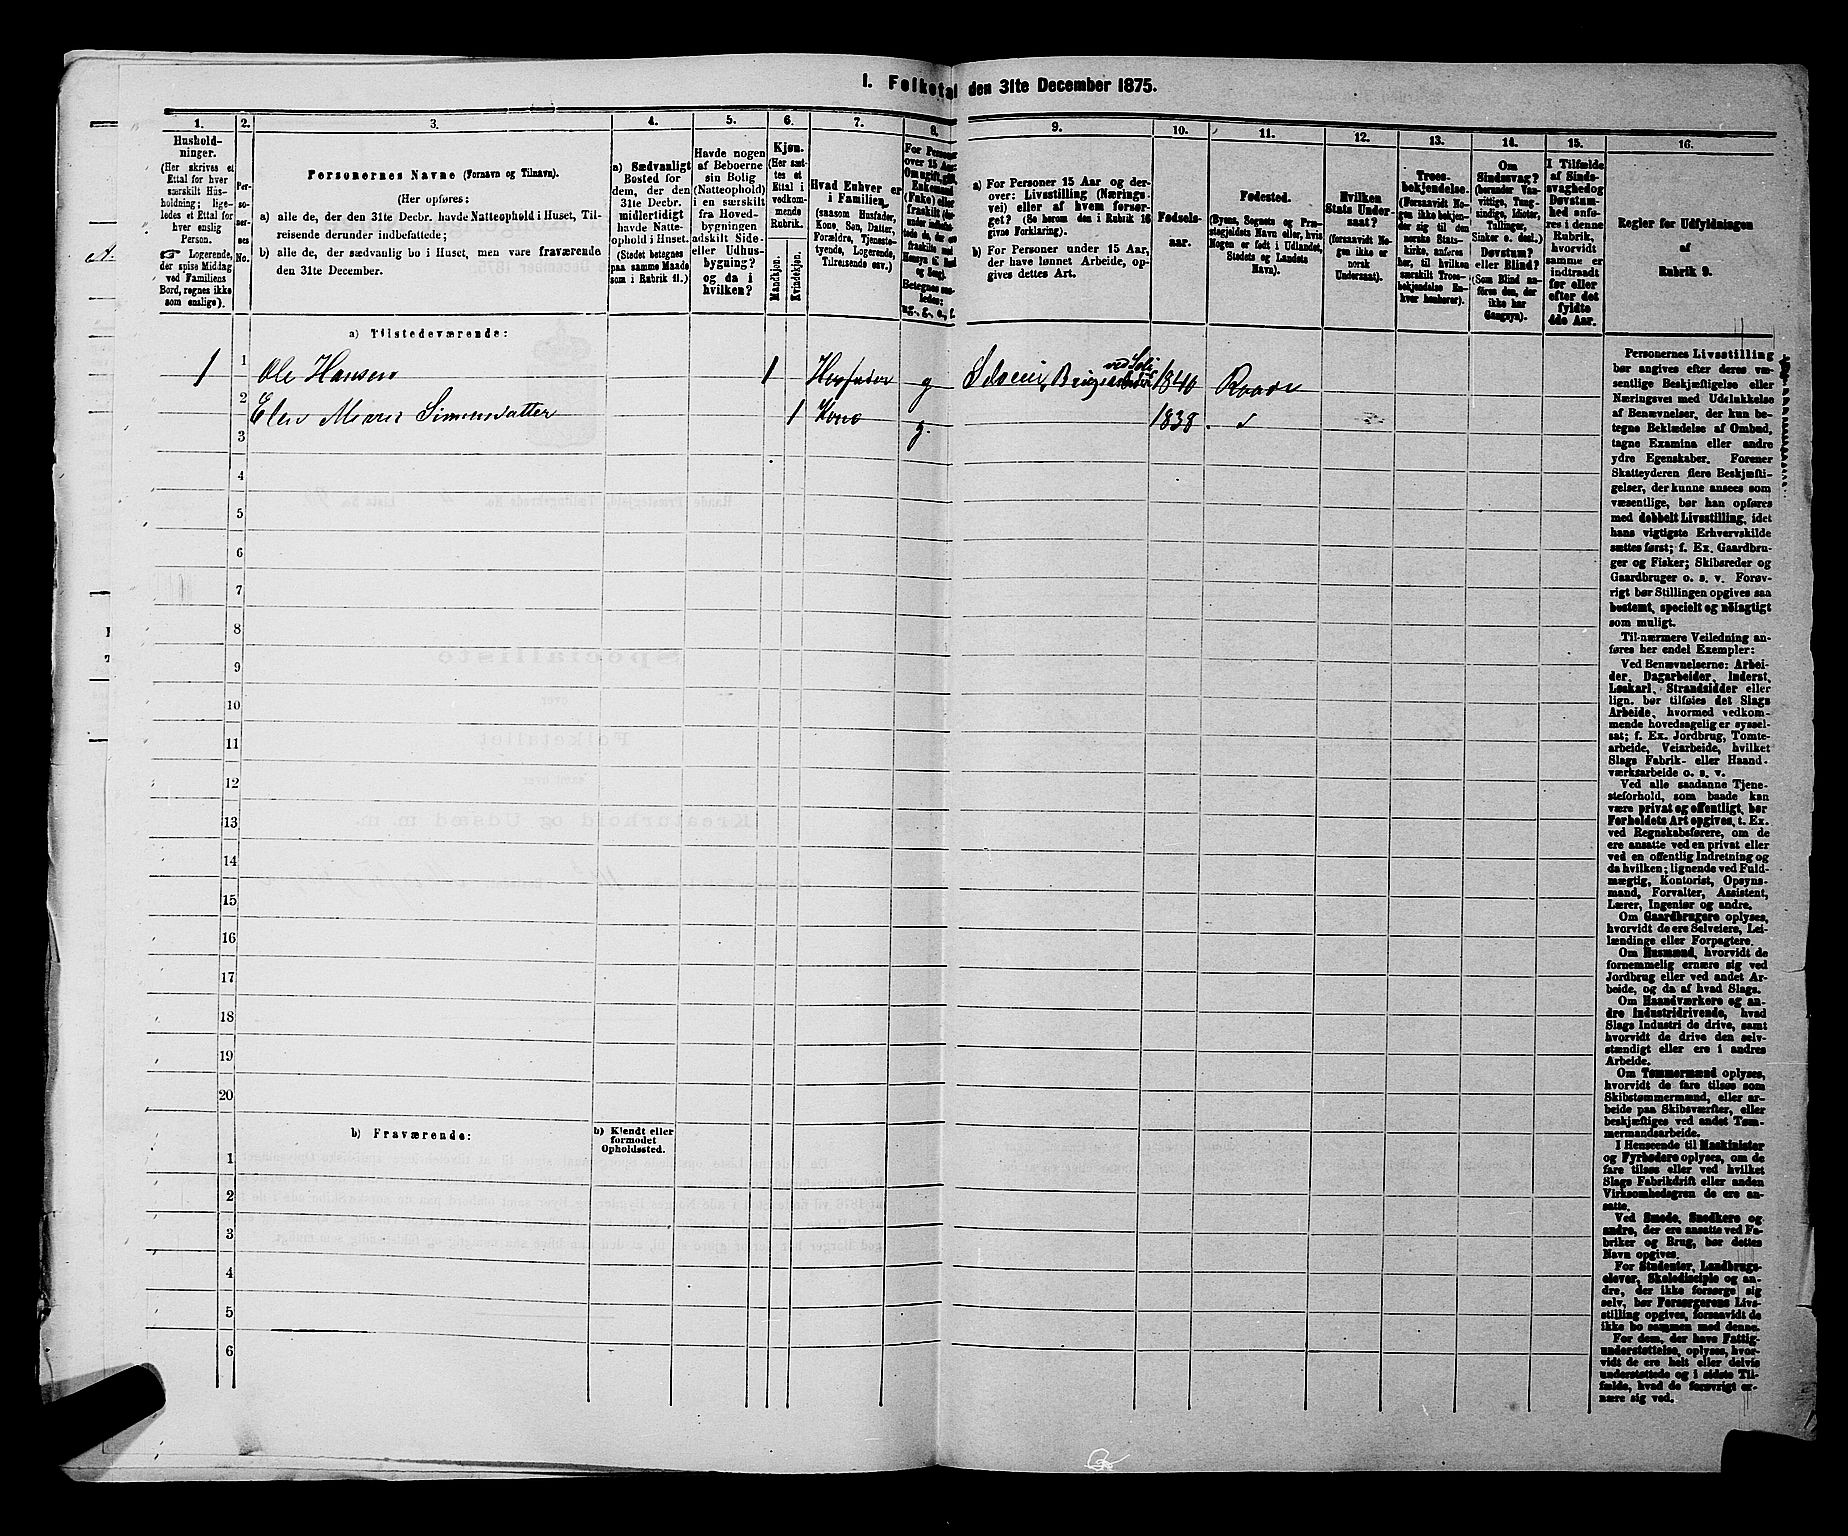 1. Folketal den 31te December 1875.
1.
2.
3.
4.
5.
6.
7.
8.
9.
10.
11.
12.
13.
14.
15.
16.
Hushold-
ninger.
(Her skrives et
Ettal for hver
særskilt Hus-
holdning; lige-
ledes et Ettal for
hver enslig
Person.
Logerende,
der spise Middag
ved Familiens
Bord, regnes ikke
som enslige).
Per-
so-
ner-
nes
No.
Personernes Navne (Fornavn og Tilnavn).
(Her opføres:
a) alle de, der den 31te Decbr. havde Natteophold i Huset, Til-
reisende derunder indbefattede;
b) alle de, der sædvanlig bo i Huset, men vare fraværende
den 31te December.
a) Sædvanligt
Bosted for
dem, der den
31te Decbr.
midlertidigt
havde Natte-
ophold i Huset.
(Stedet betegnes
paa samme Maade
som i Rubrik 11.)
Havde nogen
af Beboerne
sin Bolig
(Natteophold)
i en særskilt
fra Hoved-
bygningen
adskilt Side-
eller Udhus-
bygning?
og da i
hvilken?
Kjøn.
(Her sæt-
tes et
Ettal i
vedkom-
mende
Rubrik.
Mandkjøn.
Kvindekjøn.
Hvad Enhver er
i Familien
(saasom Husfader,
Kone, Søn, Datter,
Forældre, Tjeneste-
tyende, Logerende,
Tilreisende osv.)
For Personer
over 15 Aar:
Om ugift, gift,
Enkemand
(Enke) eller
fraskilt
Betegnes saa-
ledes:
ug., g., e., f.
a) For Personer 15 Aar og der-
over: Livsstilling (Nærings-
vei) eller af hvem forsør-
get? (Se herom den i Rubrik 16
givne Forklaring).
b) For Personer under 15 Aar,
der have lønnet Arbeide, op-
gives dettes Art.
Fødsels-
aar.
Fødested.
(Byens, Sognets og Præ-
stegjeldets Navn eller, hvis
Nogen er født i Udlandet,
Stedets og Landets
Navn).
Hvilken
Stats Under-
saat?
(forsaavidt No-
gen ikke er
norsk
Undersaat).
Troes-
bekjendelse.
(Forsaavidt No-
gen ikke bekjen-
der sig til den
norske Stats-
kirke, anføres
her, til hvilken
særskilt Troes-
bekjendelse En-
hver henhører).
Om
Sindssvag?
(herunder Van-
vittige, Tung-
sindige, Idioter,
Tullinger,
Sinker o. desl.)
Døvstum?
eller Blind?
(Som Blind an-
føres den, der
ikke har
Gangsyn).
I Tilfælde
af Sinds-
svaghed og
Døvstum-
hed anfø-
res i denne
Rubrik,
hvorvidt
samme er
indtraadt
før eller
efter det
fyldte
4de Aar.
Regler for Udfyldningen
af
Rubrik 9.
a) Tilstedeværende:
1 1 Ole Hansen 1 Husfader g Selveier 1840 Raade
2 Elen Simensdatter 1 Kone g. 1838. "
3
4
5
6
7
8
9
10
11
12
13
14
15
16
17
18
19
20
b) Fraværende:
b) Kjendt eller
formodet
Opholdssted.
1
2
3
4
5
6
Personernes Livsstilling
bør angives efter deres væ-
sentlige Beskjæftigelse eller
Næringsvei med Udelukkelse
af Benævnelser, der kun be-
tegne Beklædelse af Ombud,
tagne Examina eller andre
ydre Egenskaber. Forener
Skatteyderen flere Beskjæfti-
gelser, der kunne ansees som
væsentlige, bør han opføres
med dobbelt Livsstilling, idet
hans vigtigste Erhvervskilde
sættes først; f. Ex. Gaardbru-
ger og Fisker; Skibsreder og
Gaardbruger o. s. v. Forøv-
rigt bør Stillingen opgives saa
bestemt, specielt og nøiagtigt
som muligt.
Til nærmere Veiledning an-
føres her endel Exempler:
Ved Benævnelserne: Arbei-
der, Dagarbeider, Inderst,
Løskarl, Strandsidder eller
lign. bør tilføies det Slags
Arbeide, hvormed vedkom-
mende hovedsagelig er syssel-
sat; f. Ex. Jordbrug, Tomte-
arbeide, Veiarbeide, hvilket
Slags Fabrik- eller Haand-
værksarbeide o. s. v.
Ved alle saadanne Tjene-
steforhold, som baade kan
være privat og offentligt, bør
Forholdets Art opgives, t. Ex.
ved Regnskabsførere, om de
ere ansatte ved en privat eller
ved en offentlig Indretning og
da hvilken; lignende ved Fuld-
mægtig, Kontorist, Opsyns-
mand, Forvalter, Assistent,
Lærer, Ingeniør og andre.
Om Gaardbrugere oplyses,
hvorvidt de ere Selveiere, Lei-
lændinge eller Forpagtere.
Om Husmænd, hvorvidt de
fornemmelig ernære sig ved
Jordbrug eller ved andet Ar-
beide, og da af hvad Slags.
Om Haandværkere og an-
dre Industridrivende, hvad
Slags Industri de drive, samt
hvorvidt de drive den selv-
stændigt eller ere i andres
Arbeide.
Om Tømmermænd oplyses,
hvorvidt de fare tilsøs som
Skibstømmermænd, eller ar-
beide paa Skibsværfter, eller
beskjæftiges ved andet Tøm-
mermandsarbeide.
I Henseende til Maskinister
og Fyrbødere oplyses, om de
fare tilsøs eller ved hvilket
Slags Fabrikdrift eller anden
Virksomhedsgren de ere an-
satte.
Ved Smede, Snedkere og
andre, der ere ansatte ved Fa-
briker og Brug, bør dettes
Navn opgives.
For Studenter, Landbrugs-
elever, Skoledisciple og an-
dre, der ikke forsørge sig
selv, bør Forsørgerens Livs-
stilling opgives, forsaavidt de
ikke bo sammen med denne.
For dem, der have Fattig-
understøttelse, oplyses, hvor-
vidt de ere helt eller delvis
understøttede og i sidste Til-
fælde, hvad de forøvrigt er-
nære sig ved.